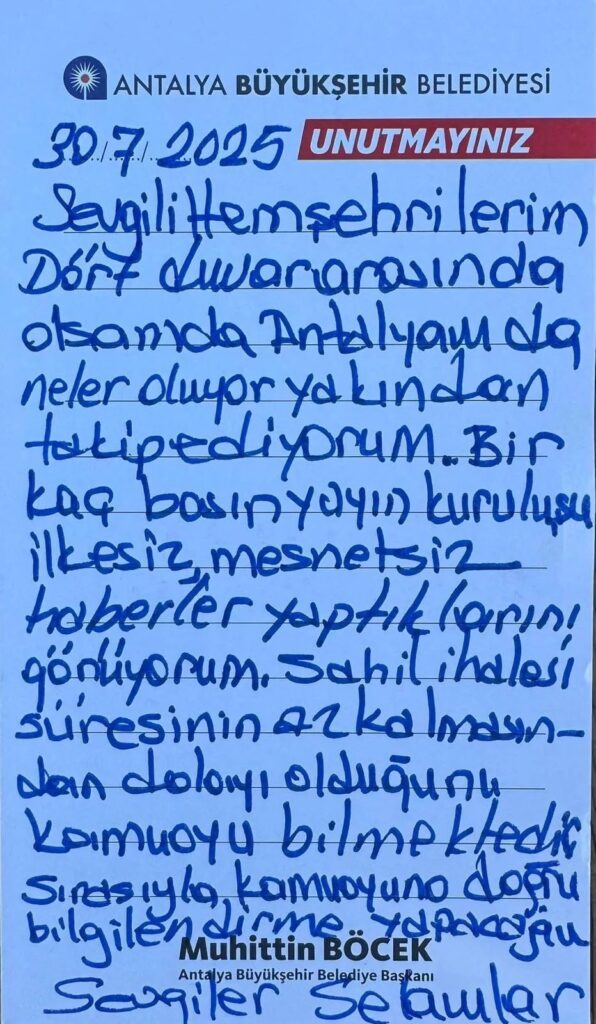 ANTALYA BÜYÜKŞEHİR BELEDİYESİ
30.7.2025 UNUTMAYINIZ
Sevgili Hemşehrilerim
Dört duvar arasında
olsamda Antalyamda
neler oluyor yakından
takip ediyorum.. Bir
kaç basın yayın kuruluşu
ilkesiz, mesnetsiz
haberler yaptıklarını
görüyorum. Sahil ihalesi
süresinin az kalmasın-
dan dolayı olduğunu
kamuoyu bilmektedir
sırasıyla kamuoyuna doğru
bilgilendirme yapacağım
Muhittin BÖCEK
Antalya Büyükşehir Belediye Başkanı
Sevgiler Selamlar